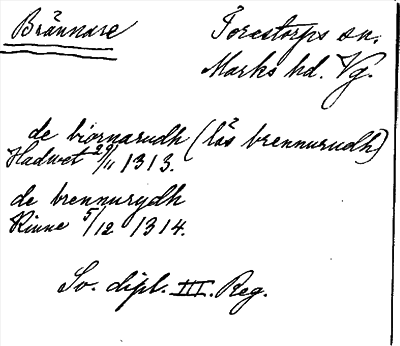 Brännare
Torestorps sn.
Marks hd. Vg.
de biornarudh (läs brennurudh)
Hadwet 29/11 1313.
de brennurydh
Rinne 5/12 1314.
Sv. dipl. III. Reg.